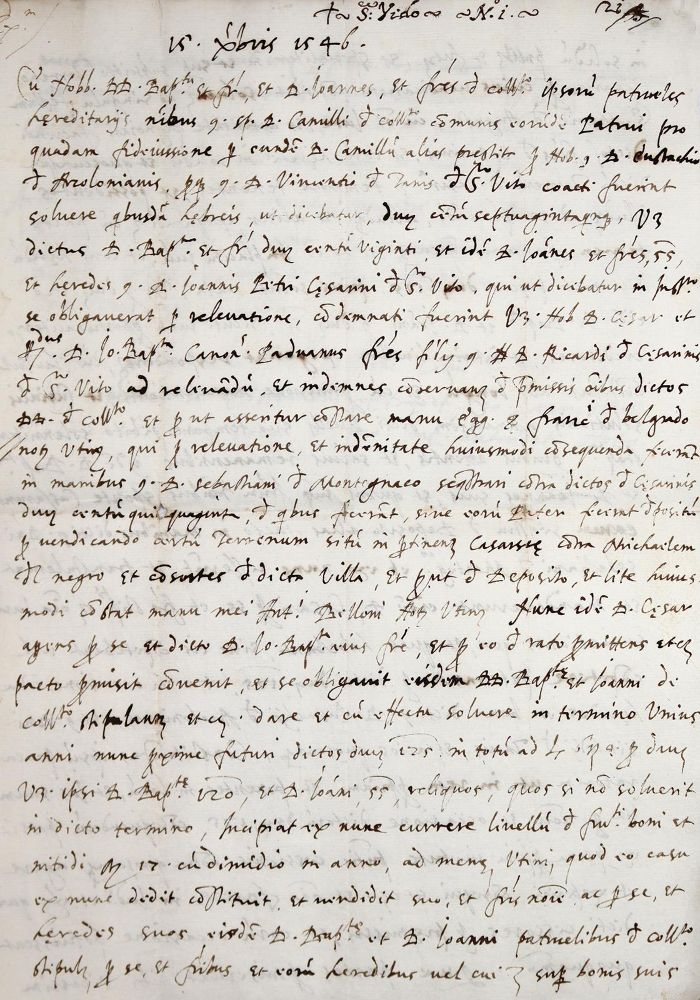 S. Vido N. i.
15. Xbris 1546.
Cũ Nob. DD. Bap.ta et fr̃, et D. Joannes, et fr̃es d̃ coll.to ipsorũ patrueles
hęreditarijs nõibus q. sp. D. Camilli d̃ coll.to comunis eorũdẽ Patrui pro
quadam fideiussione p̱ eundẽ D. Camillũ alias prestita p̱ Nob. q. D. Eustachio
d̃ Arzolonianis, D. Vincentio d̃ S.to Vito coacti fuerint
solvere q̃busdã hębreis, ut dicebatur, duc̃ cẽtũ septuagintaquinq̃, Vz
dictus D. Bap.ta et fr̃ duc̃ centũ viginti, et idẽ D. Joãnes et fr̃es, 55,
et hęredes q. D. Joannis Petri Cęsarini d̃ S.to Vito, qui ut dicebatur in
se obligaverat p̱ relevatione, cõdemnati fuerint Vz. Nob D. Cęsar et
D. Jo. Bap.ta Canon.s Paduanus fr̃es filij q. D. Ricardi d̃ Cęsarinis
d̃ S.to Vito ad relevãdũ, et indemnes cõservanz̃ d̃ p̃missis oĩbus dictos
DD. d̃ coll.to. et p̱ ut asseritur cõstare manu franc̃ d̃ belgrado
not̃ Vtiñ, qui p̱ relevatione, et indẽnitate huiusmodi cõsequenda fecerũt
in manibus q. D. sebastiani d̃ Montegnaco seq̃strari cõtra dictos d̃ Cęsarinis
duc̃ centũ quinquaginta, d̃ q̃bus fecerãt, sive eorũ Pater fecerat d̃positũ
p̱ vendicando certũ Terrenum sitũ in p̱tinenz̃ Casarsię cõtra Michaelem
d̃l negro et consortes d̃ dicta Villa, et p̱ut d̃ Deposito, et lite huius
modi cõstat manu mei Ant.i Belloni Not̃ Vtiñ. Nunc idẽ D. Cęsar
agens p̱ se, et dicto D. Jo. Bap.ta eius fr̃e, et p̱ eo d̃ rato p̱mittens etc̃
pacto p̱misit cõvenit, et se obligavit eisdem DD. Bap.tę et Joanni de
coll.to stipulanz̃ etc̃. dare et cũ effectu solvere in termino Vnius
anni nunc p̱xime futuri dictos duc̃ 175 in totũ ad duc̃
Vz. ipsi D. Bap.tę 120, et D. Joãni, 55, reliquos, quos si nõ solverit
in dicto termino, Incipiat ex nunc currere livellũ d̃ frũ.ti boni et
nitidi 17. cũ dimidio in anno, ad mens̃ Vtini, quod eo casu
ex nunc dedit cõstituit, et vendidit suo, et fr̃is nõie ac p̱ se, et
hęredes suos eisdẽ D. Bap.tę et D. Joanni patruelibus d̃ coll.to
stipulz̃ p̱ se, et fr̃ibus et eorũ heredibus vel cui sup̱ bonis suis